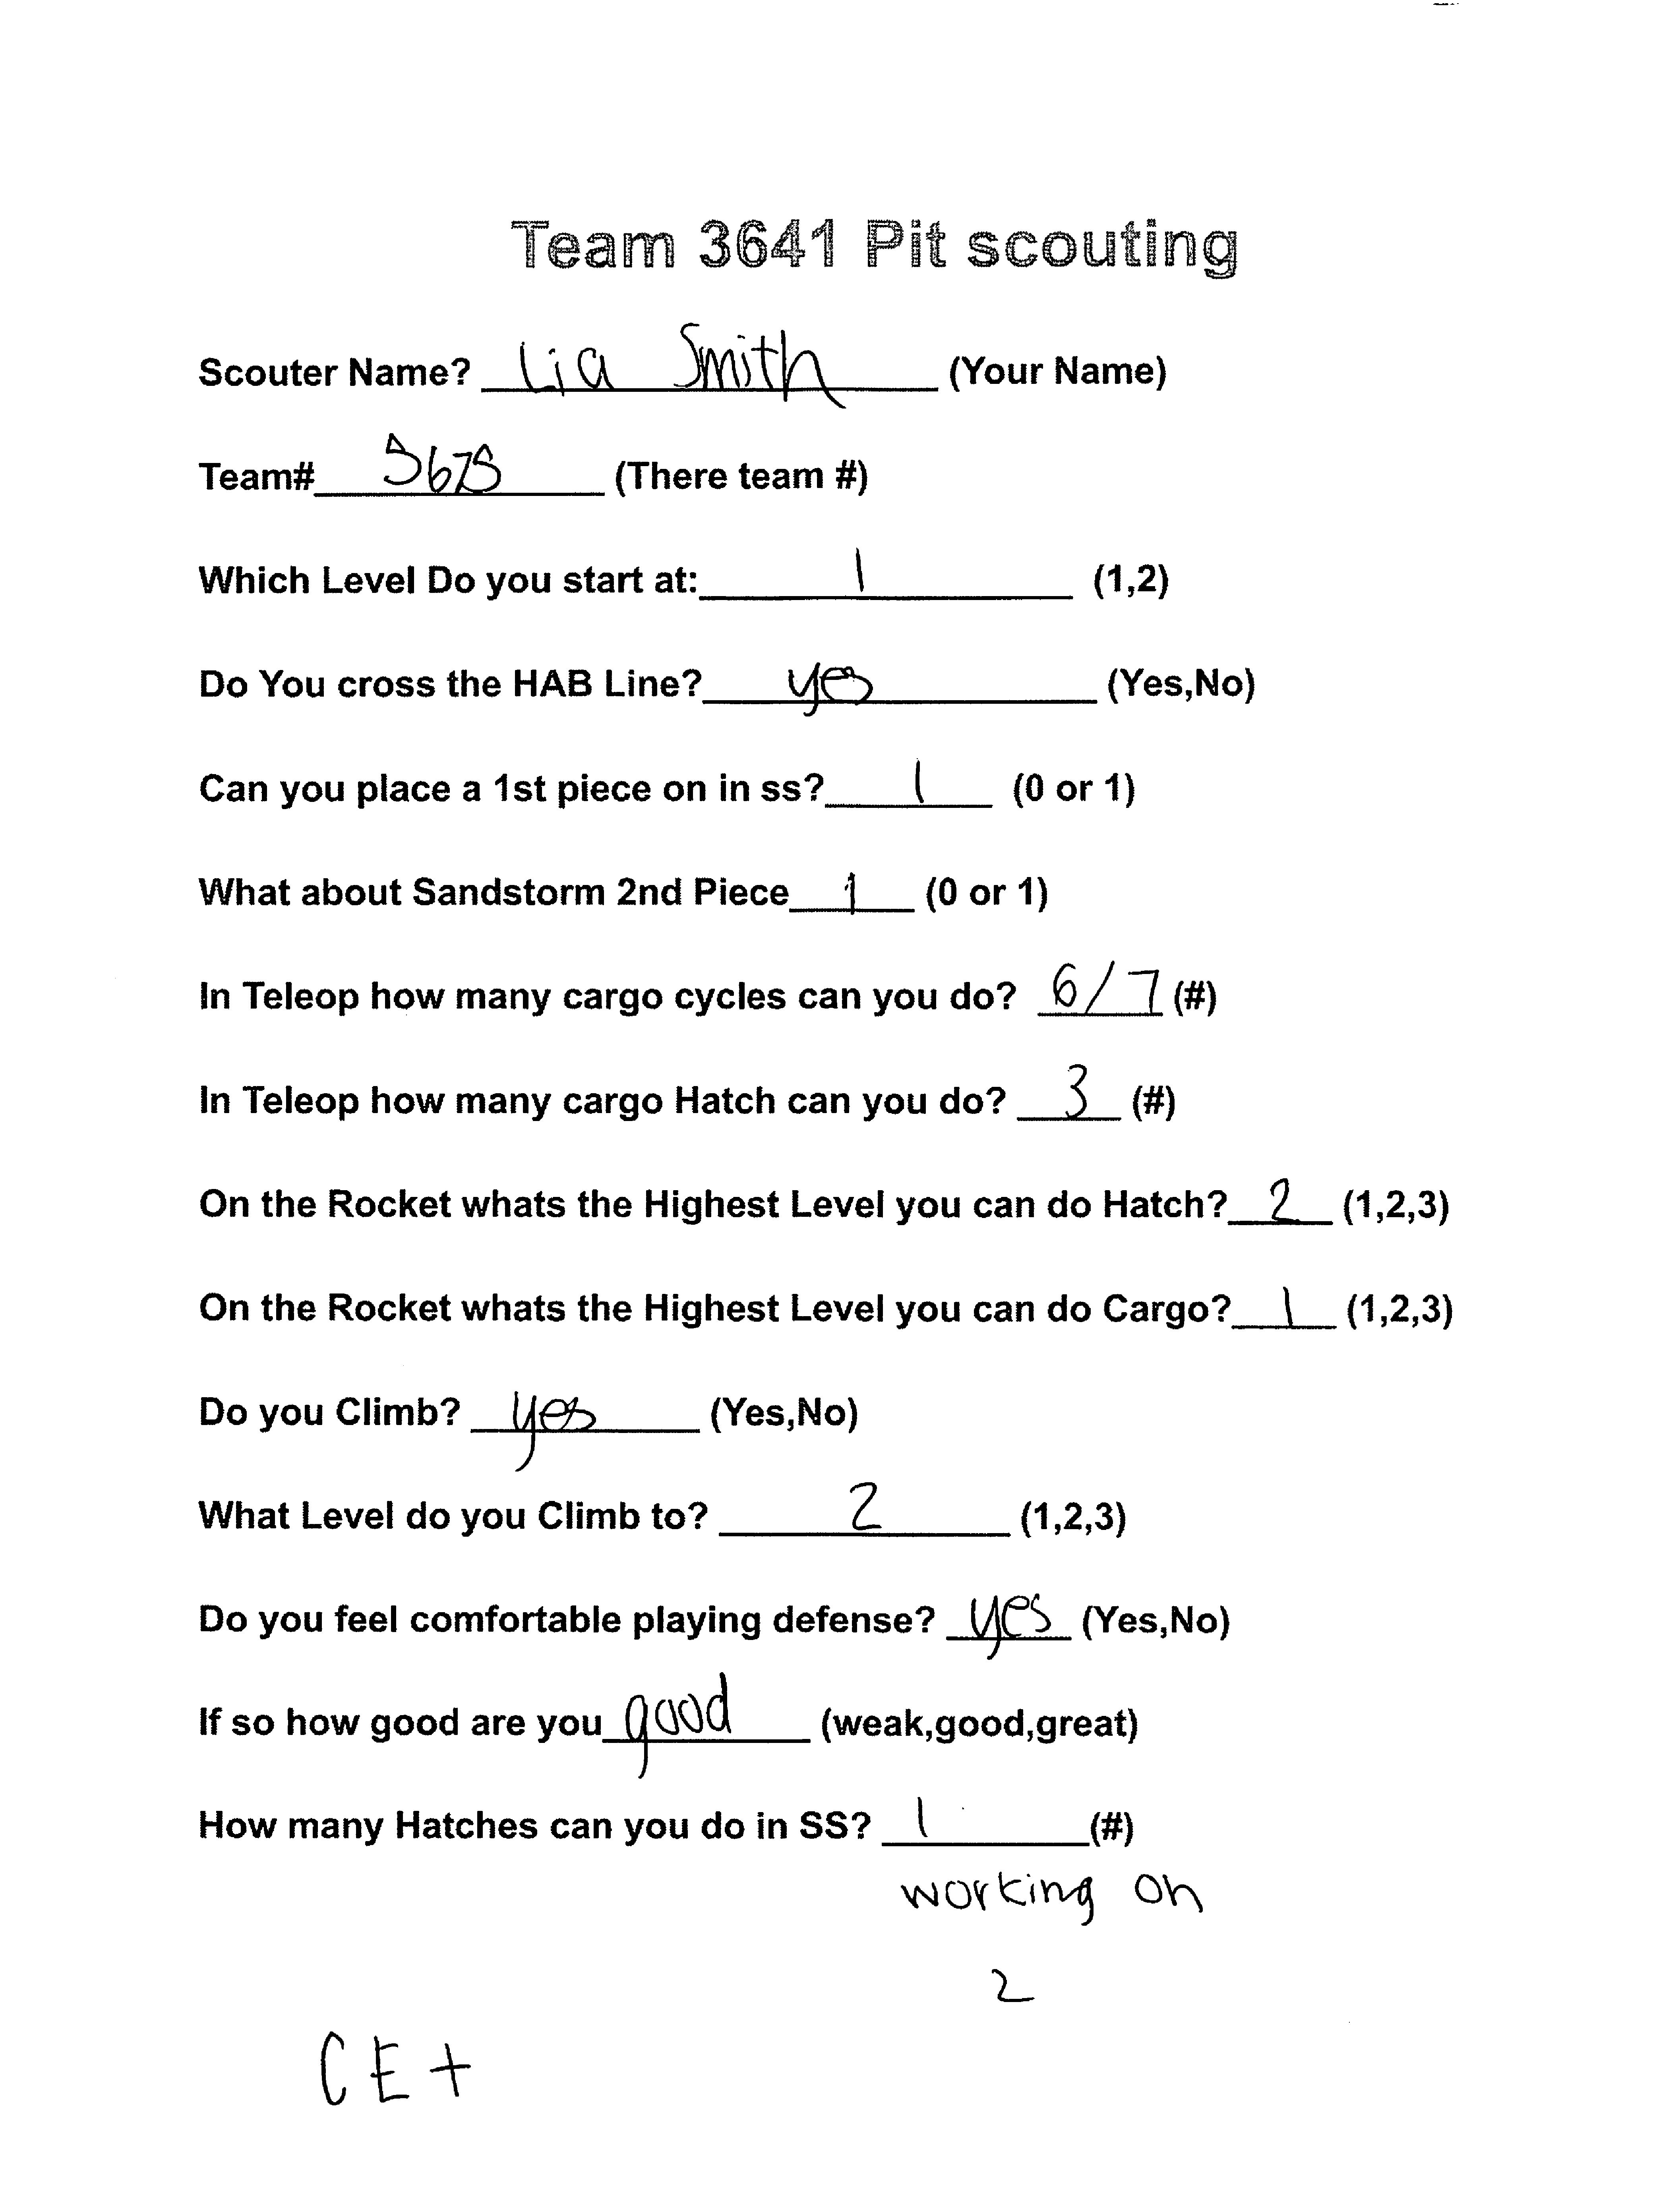 Team 3641 Pit scouting
Scouter Name? Lia Smith (Your Name)
Team# 5675 (There team #)
Which Level Do you start at: 1 (1,2)
Do You cross the HAB Line? yes (Yes,No)
Can you place a 1st piece on in ss? 1 (0 or 1)
What about Sandstorm 2nd Piece 1 (0 or 1)
In Teleop how many cargo cycles can you do? 6/7 (#)
In Teleop how many cargo Hatch can you do? 3 (#)
On the Rocket whats the Highest Level you can do Hatch? 2 (1,2,3)
On the Rocket whats the Highest Level you can do Cargo? 1 (1,2,3)
Do you Climb? yes (Yes,No)
What Level do you Climb to? 2 (1,2,3)
Do you feel comfortable playing defense? yes (Yes,No)
If so how good are you good (weak,good,great)
How many Hatches can you do in SS? 1 (#)
working on
2
CE+